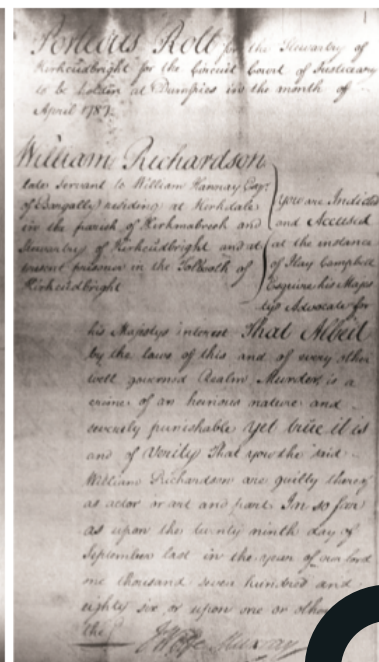 Porteous Roll for the Stewartry of
Kirkcudbright for the Circuit Court of Justiciary
to be holden at Dumfries in the month of
April 1787.
William Richardson
late Servant to William Hannay Esqr.
of Bargally residing at Kirkdale
in the parish of Kirkmabreck and
Stewartry of Kirkcudbright and at
present prisoner in the Tolbooth of
Kirkcudbright
You are Indicted
and Accused
at the instance
of Ilay Campbell
Esquire his Majes
tys Advocate for
his Majestys interest That Albeit
by the laws of this and of every other
well governed Realm Murder, is a
crime of an heinous nature and
severely punishable Yet true it is
and of Verity That you the said
William Richardson are guilty thereof
as actor or art and part In so far
as upon the twenty ninth day of
September last in the year of our lord
one thousand seven hundred and
eighty six, or upon one or other
the
Murray